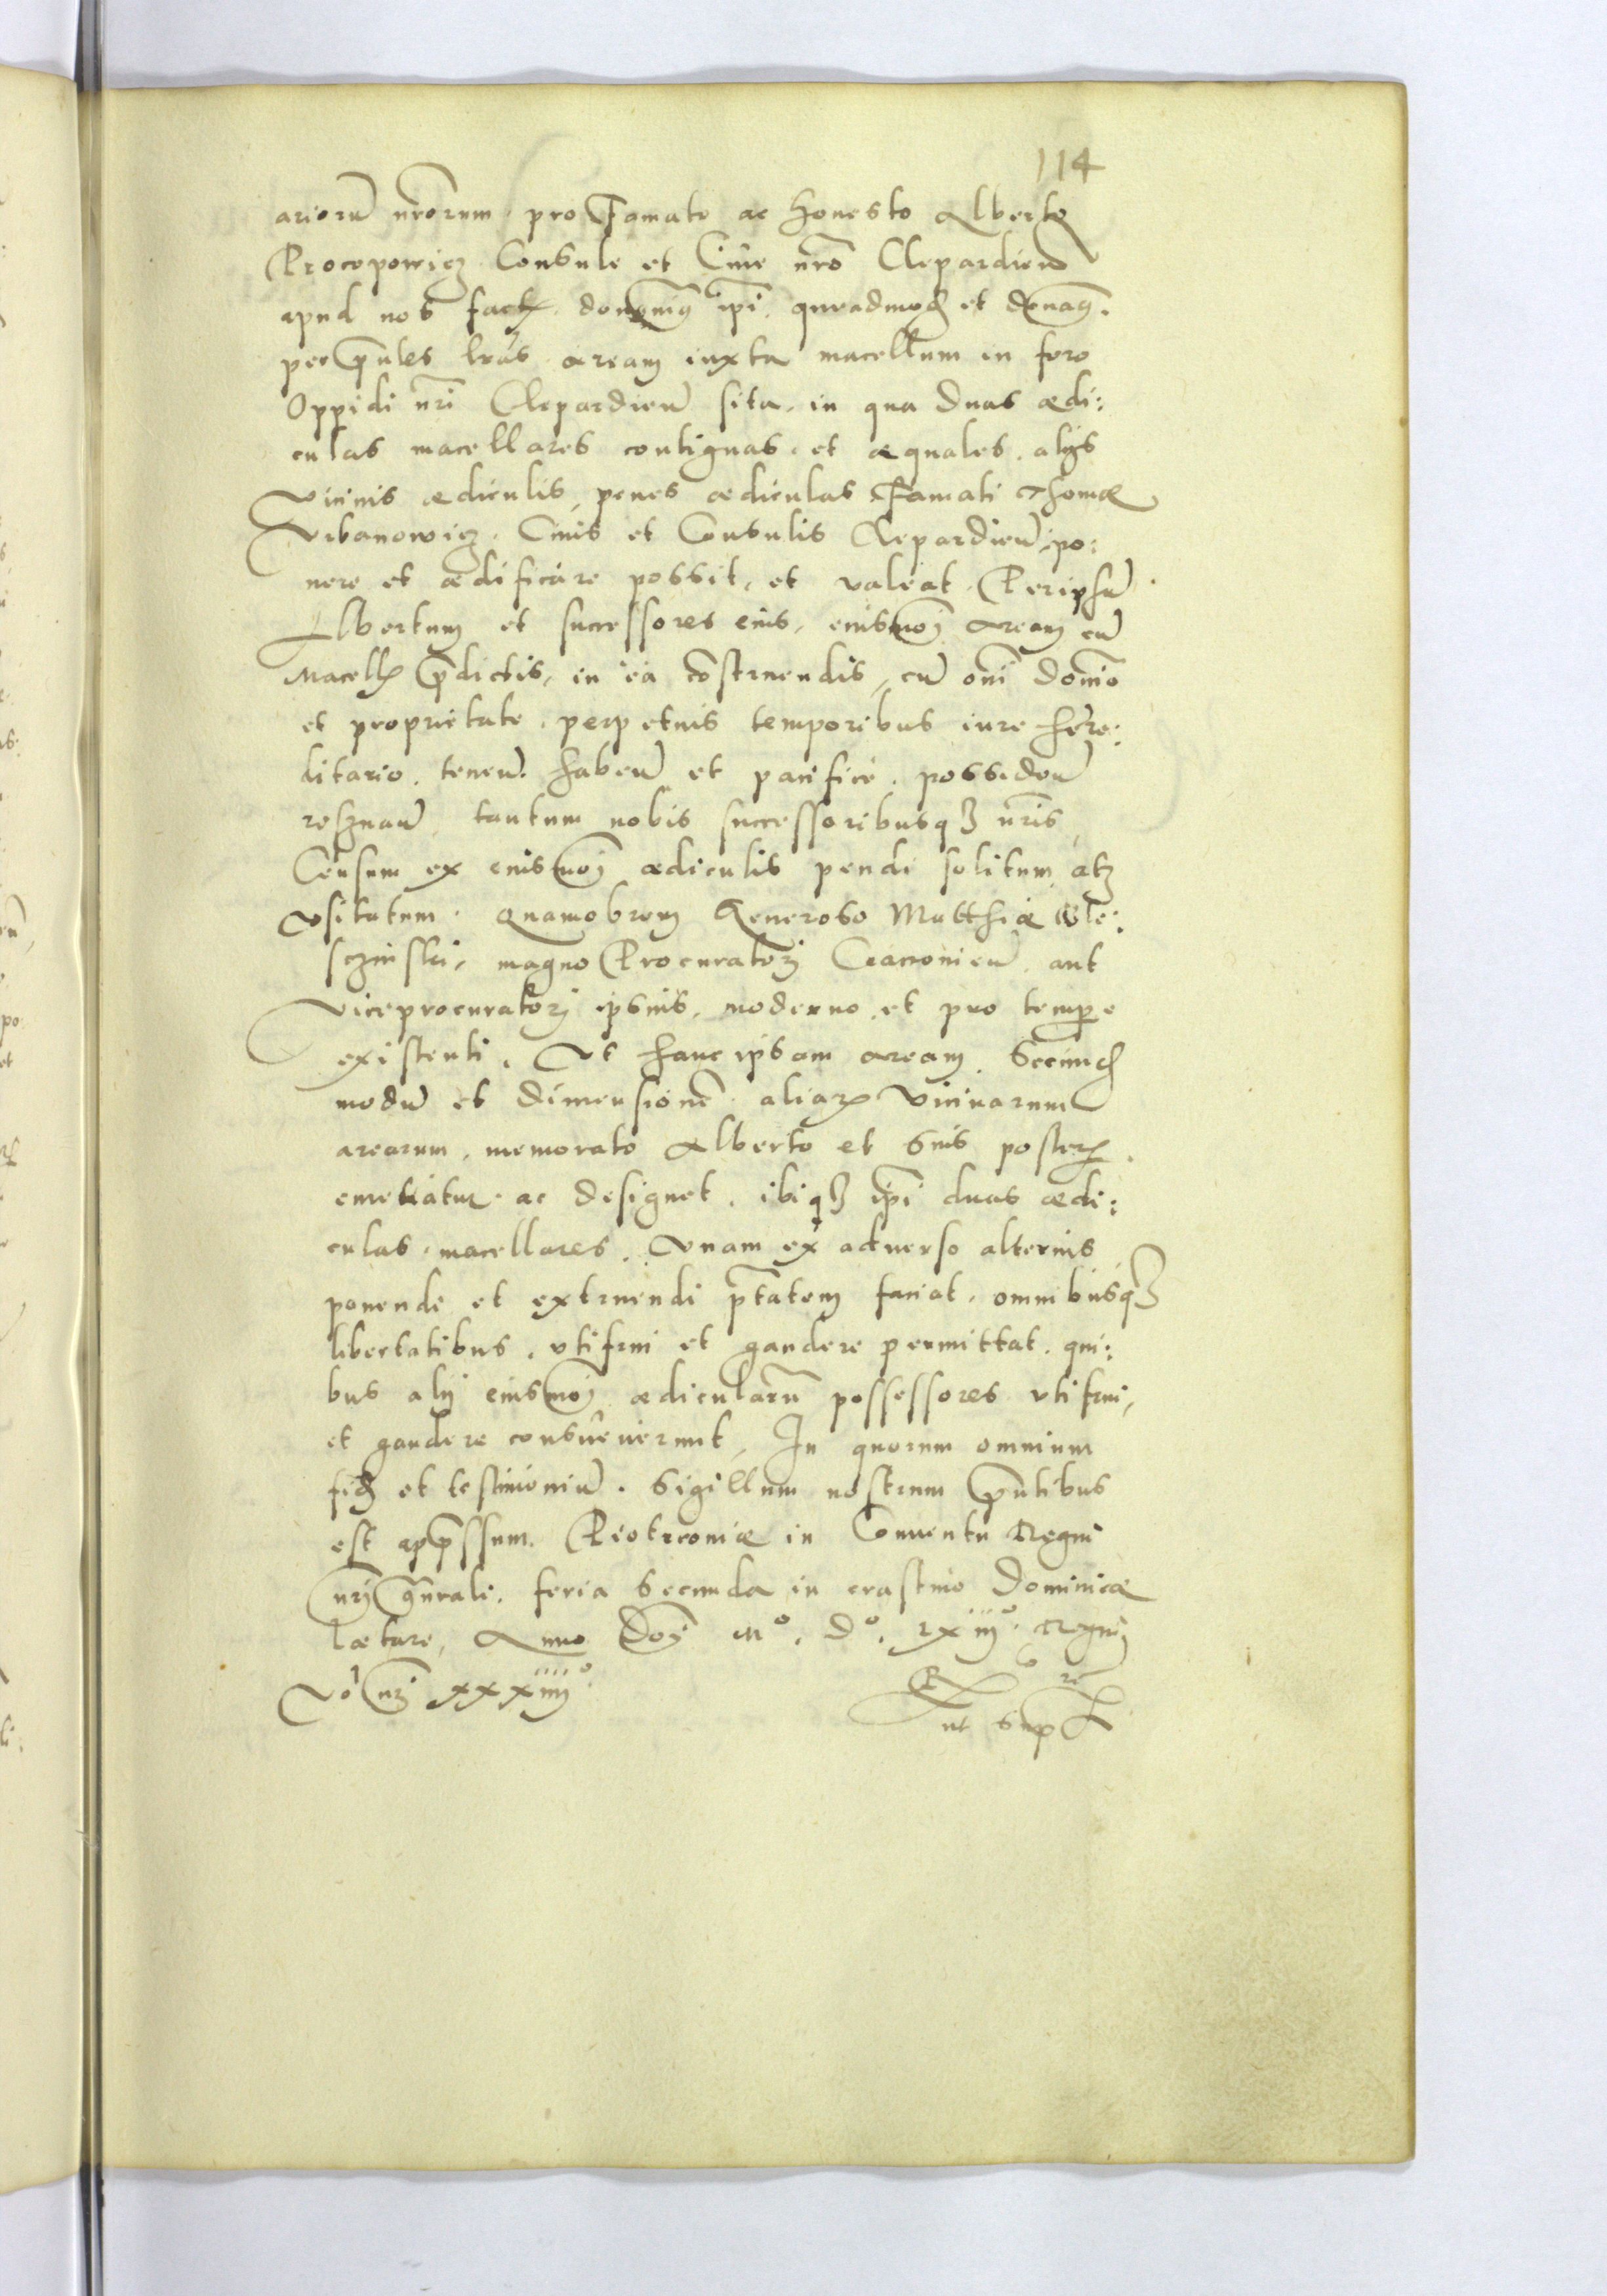 114
ariorũ nrõrum pro Famato ac Honesto Alberto
Procopowicz Consule et Ciue nrõ Cleparđien̄
apud nos fact donauimꝰ ipĩ queadmodꝫ et donam̃ꝰ
per p̃ntes lrãs aream iuxta macellum in foro
Oppidi nrĩ Clepardien̄ sita, in qua duas ædi:
culas macellares contiguas, et æquales, alijs
vicinis ædiculis, penes ædiculas Famati Thomæ
Vrbanowicz Ciuis et Consulis Clepardien̄, po:
nere et ædificare possit, et valeat. Per ipsũ
Albertum et successores eius, eiusmoĩ aream cũ
Macell̃ p̃dictis, in ea cõstruendis, cũ oñi doñio
et proprietate, perpetuis temporibus iure here:
ditario, tenen̄. haben̄ et pacifice possiden̄
reseruan̄, tantum nobis successoribusqꝫ nrĩs,
Censum ex eiusmoĩ ædiculis pendi solitum, atqꝫ
vsitatum. Quamobrem Generoso Matthiæ Wle:
sczinski, magno Procuratori Cracouien̄ aut
viceprocuratori ipsius, moderno et pro tempe
existenti, Vt hanc ipsam aream, Secundꝫ
modũ et dimensionẽ aliarꝫ vicinarum
arearum, memorato Alberto et suis poster̃
emetiatur ac designet, ibiqꝫ ipĩ duas ædi:
culas macellares, Vnam ex aduerso alterius
ponendi et extruendi p̃tatem faciat, omnibusqꝫ
libertatibus, vti frui et gaudere permittat, qui:
bus alij eiusmoĩ ædicularũ possessores vti frui,
et gaudere consueuerunt, In quorum omnium
fidꝫ et testimoniũ. Sigillum nostrum p̃ntibus
est app̃ssum. Piotrconiæ in Conuentu Regni
nrĩ gñrali. feria Secunda in crastino Dominicæ
lætare, Anno Dnĩ Mº. Dº. lxiiiº Regni
vº nrĩ xxxiiiiº
R
re
ut supra